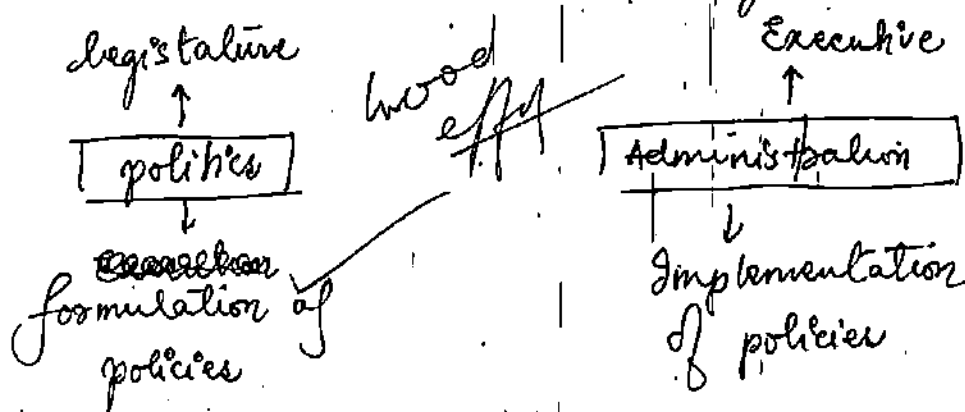 Legislature
politics
formulation of
policies
Good
effort
Executive
Administration
Implementation
of policies